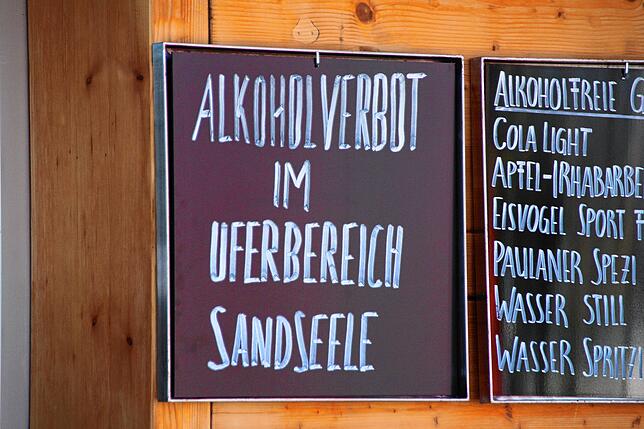 ALKOHOLVERBOT
IM
UFERBEREICH
SANDSEELE
ALKOHOLFREIE
COLA LIGHT
APFEL-/RHABARBE
EISVOGEL SPORT
PAULANER SPEZI
WASSER STILL
WASSER SPRITZI